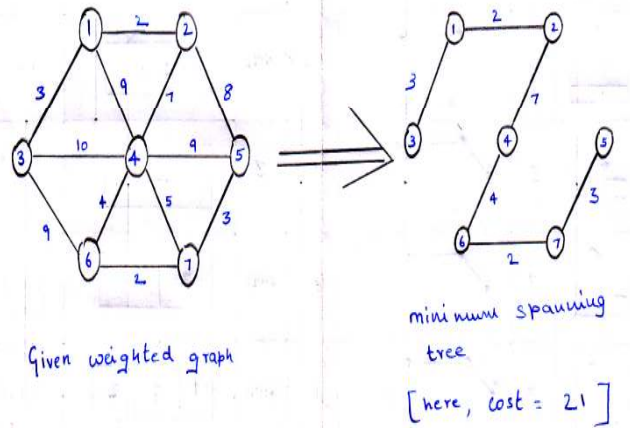 1 2 2
3 9 7 8
3 10 4 9 5
9 4 5 3
6 2 7
Given weighted graph
1 2 2
3 7
3 4 5
4 3
6 2 7
minimum spanning
tree
[here, cost = 21]